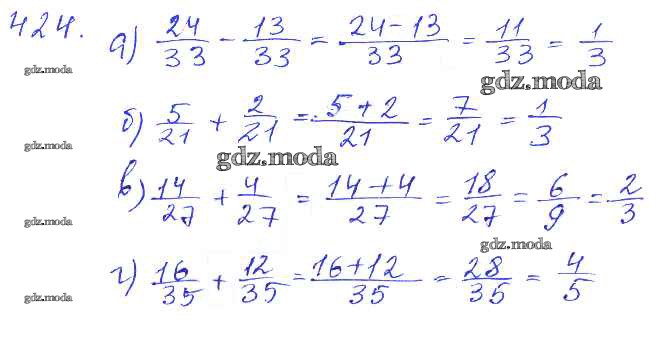 424. а) 24/33 - 13/33 = 24-13/33 = 11/33 = 1/3
gdz.moda gdz.moda
б) 5/21 + 2/21 = 5+2/21 = 7/21 = 1/3
gdz.moda gdz.moda
в) 14/27 + 4/27 = 14+4/27 = 18/27 = 6/9 = 2/3
gdz.moda gdz.moda
г) 16/35 + 12/35 = 16+12/35 = 28/35 = 4/5
gdz.moda